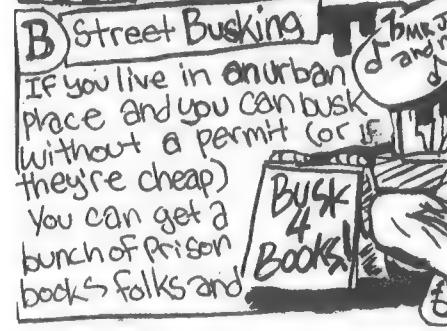 B Street Busking
If you live in an urban
place and you can busk
without a permit (or if
they're cheap)
You can get a
bunch of prison
books folks and
BUSK
4
BOOKS!